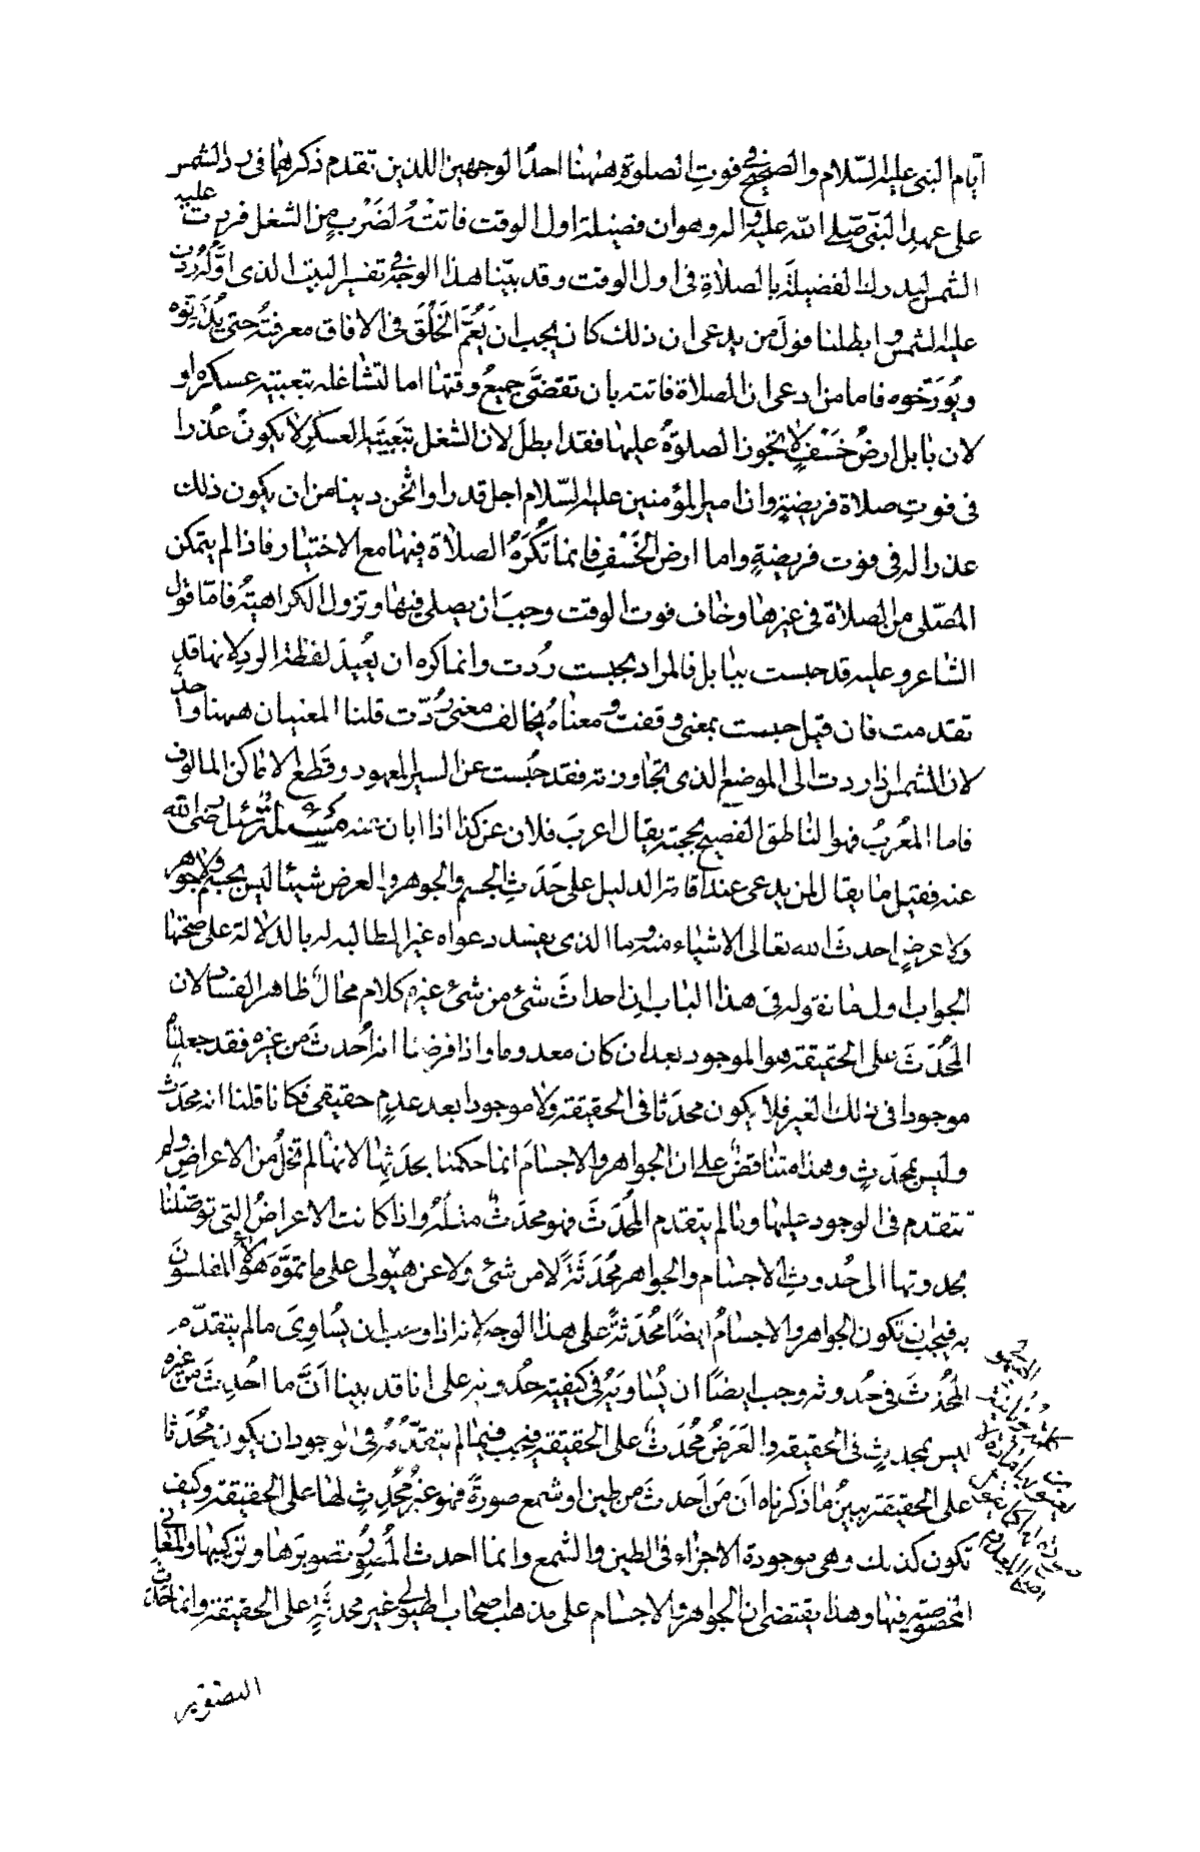 ايّام النبي عليه السّلام والصحيح في فوتِ الصلوة ههنا احد الوجهين اللذين تقدم ذكرهما في رد الشمس
على عهد النبي صلى الله عليه واله وهو ان فضيلة اول الوقت فاتتْهُ لضَرْبٍ من الشغل فردت عليه
الشمس ليدرك الفضيلة بالصلاةِ في اول الوقت وقد بيّنا هذا الوجه في تفسير البيت الذي اوّله ردت
عليه الشمس وابطلنا قولَ من يدعى ان ذلك كان يجب ان يَعُمَّ الخَلْقَ في الافاق معرفتُه حتى يُدَوِّنوه
ويُوَرّخوه فاما من ادعى ان الصلاة فاتته بان تقضَّى جميعُ وقتها اما لتشاغله بتعبيته عسكره او
لان بابل ارضُ خَسْفٍ لا تجوز الصلوةُ عليها فقد ابطلَ لان الشغل بتَعبيَةِ العسكرِ لا يكونُ عُذرا
في فوتِ صلاة فريضةٍ وان امير المؤمنين عليه السّلام اجل قدرا واثخن دينا من ان يكون ذلك
عذرا له في فوت فريضةٍ واما ارض الخَسْفِ فانما تُكرَهُ الصلاة فيها مع الاختيار فاذا لم يتمكن
المُصَلّى من الصلاة في غيرها وخاف فوت الوقت وجبَ ان يصلى فيها وتزول الكراهيةُ فامّا قول
الشاعر وعليه قد حبست ببابل فالمراد بحبست رُدت وانما كره ان يُعيدَ لفظة الرد لانها قد
تقدمت فان قيل حبست بمعنى وقفت ومعناهُ يخالف معنى رُدّت قلنا المعنيان ههنا واحدٌ
لان الشمس اذا ردت الى الموضع الذي تجاوزته فقد حُبست عن السير المعهود وقَطْع الاماكن المالوف
فاما المُعربُ فهو الناطق الفصيح بحجته يقال اعربَ فلان عن كذا اذا ابان عنه مسئلة سُئل رضى الله
عنه فقيل ما يقال لمن يدعى عند اقامة الدليل على حَدَثِ الجسم والجوهر والعرض شيئا ليس بجسم ولا جوهر
ولا عرضٍ احدثَ الله تعالى الاشياء منه وما الذي يفسد دعواه غير المطالبه له بالدلالة على صحتها
الجواب اول ما نقوله في هذا الباب ان احداثَ شئ من شئ غيره كلام محالٌ ظاهر الفساد لان
المُحْدَثَ على الحقيقة هو الموجود بعد ان كان معدوما واذا فرضنا انه اُحدثَ من غيره فقد جعلناه
موجودا في ذلك الغير فلا يكون محدَثا في الحقيقة ولا موجودا بعد عدمٍ حقيقى فكانا قلنا انه محدَث
وليس بمحدَثٍ وهذا متناقضٌ على ان الجواهر والاجسام انما حكمنا بحدَثِها لانها لم تخلُ من الاعراض ولم
تتقدم في الوجود عليها وما لم يتقدم المُحدَثَ فهو محدَثٌ مثلُه واذا كانت الاعراضُ التي توصّلنا
بحدوثها الى حُدوثِ الاجسام والجواهر مُحْدَثَةً لا من شئ ولا عن هيولى على ما تموَّهَ هؤلاء المفلسون
به فيجب ان تكون الجواهر والاجسامُ ايضًا مُحْدَثةً على هذا الوجه لانه اذا وجب ان يُساوِىَ ما لم يتقدّم
المُحْدَثَ في حُدوثه وجب ايضًا ان يُساويَه في كيفيته حُدوثه على انا قد بينا اَنَّ ما اُحدِثَ من غيره
ليس بمحدثٍ في الحقيقه والعَرَضُ مُحْدَث على الحقيقة فيجب فيما لم يتقدّمهُ في الوجود ان يكون مُحدَثا
على الحقيقة يبينُ ما ذكرناه اَن مَن اَحدثَ من طينٍ او شمع صورةً فهو غير مُحدِثٍ لها على الحقيقة وكيف
تكون كذلك وهي موجودة الاجزاء في الطين والشمع وانما احدث المُصوِّر تصويرَها وتركيبها والمعاني
المخصوصة فيها وهذا يقتضى ان الجواهر والاجسام على مذهب اصحاب الهيولى غير محدثةٍ على الحقيقة وانما حدث
التصوير